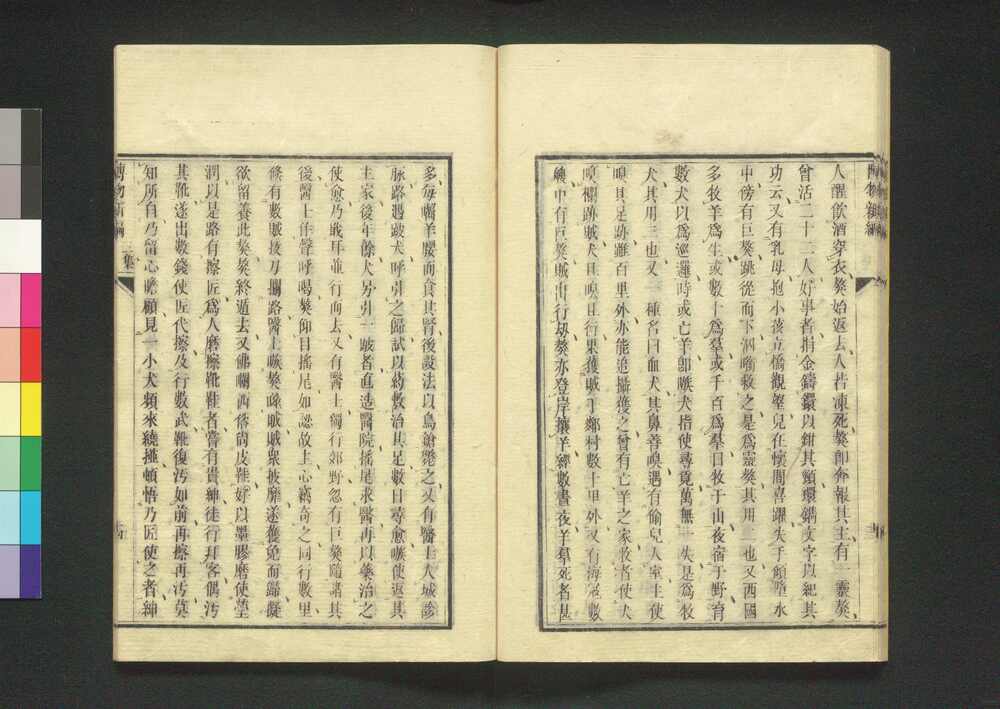 博物新編
人醒飲酒穿衣獒始返去人若凍死獒卽奔報其主有一靈獒
曾活二十二人好事者捐金鑄鐶以鉗其頸環鐫文字以紀其
功云又有乳母抱小孩立橋觀壑兒在懷間喜躍失手顛墮水
中傍有巨獒跳從而下泅啣救之是爲靈獒其用二也又西國
多牧羊爲生或數十爲羣或千百爲羣日牧于山夜宿于野育
數犬以爲巡邏時或亡羊卽嗾犬指使尋覓萬無一失是爲牧
犬其用三也又一種名曰血犬其鼻善嗅遇有偷兒入室主使
嗅其足跡雖百里外亦能追攝獲之曾有亡羊之家牧者使犬
嗅欄跡賊犬且嗅且行果獲賊于鄰村數十里外又有海
中有巨獒賊出行劫獒亦登岸攘羊經數晝夜羊羣死者甚
多每囓羊腰而食其腎後設法以鳥鎗斃之又有醫士入城診
脉路遇跛犬呼引之歸試以葯敷治其足數日尋愈嗾使返其
主家後年餘犬另引一跛者直造醫院搖尾求醫再以藥治之
使愈乃戢耳並行而去又有醫士獨行郊野忽有巨獒隨諸其
後醫士作聲呼喝獒仰目搖尾如認故主心竊奇之同行數里
條有數賊拔刀攔路醫士嗾獒噪賊賊衆披靡遂獲免而歸擬
欲留養此獒獒終遁去又佛囒西俗尚皮鞋好以墨膠磨使瑩
潤以是路有擦匠爲人磨擦靴鞋者嘗有貴紳徒行拜客偶汚
其靴遂出數錢使匠代擦及行數武靴復汚如前再擦再汚莫
知所自乃留心瞻顧見一小犬頻來繞搔頓悟乃匠使之者紳
博物新編
三集